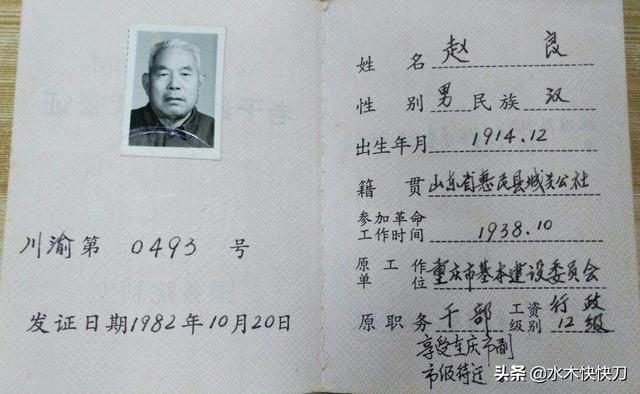 川渝第 0493 号
发证日期1982年10月20日
姓名 赵良
性别 男 民族 汉
出生年月 1914.12
籍贯 山东省惠民县城关公社
参加革命
工作时间 1938.10
原工作
单位 重庆市基本建设委员会
原职务 干部 工资级别 行政12级
享受重庆市副
市级待迂
头条 @水木快快刀